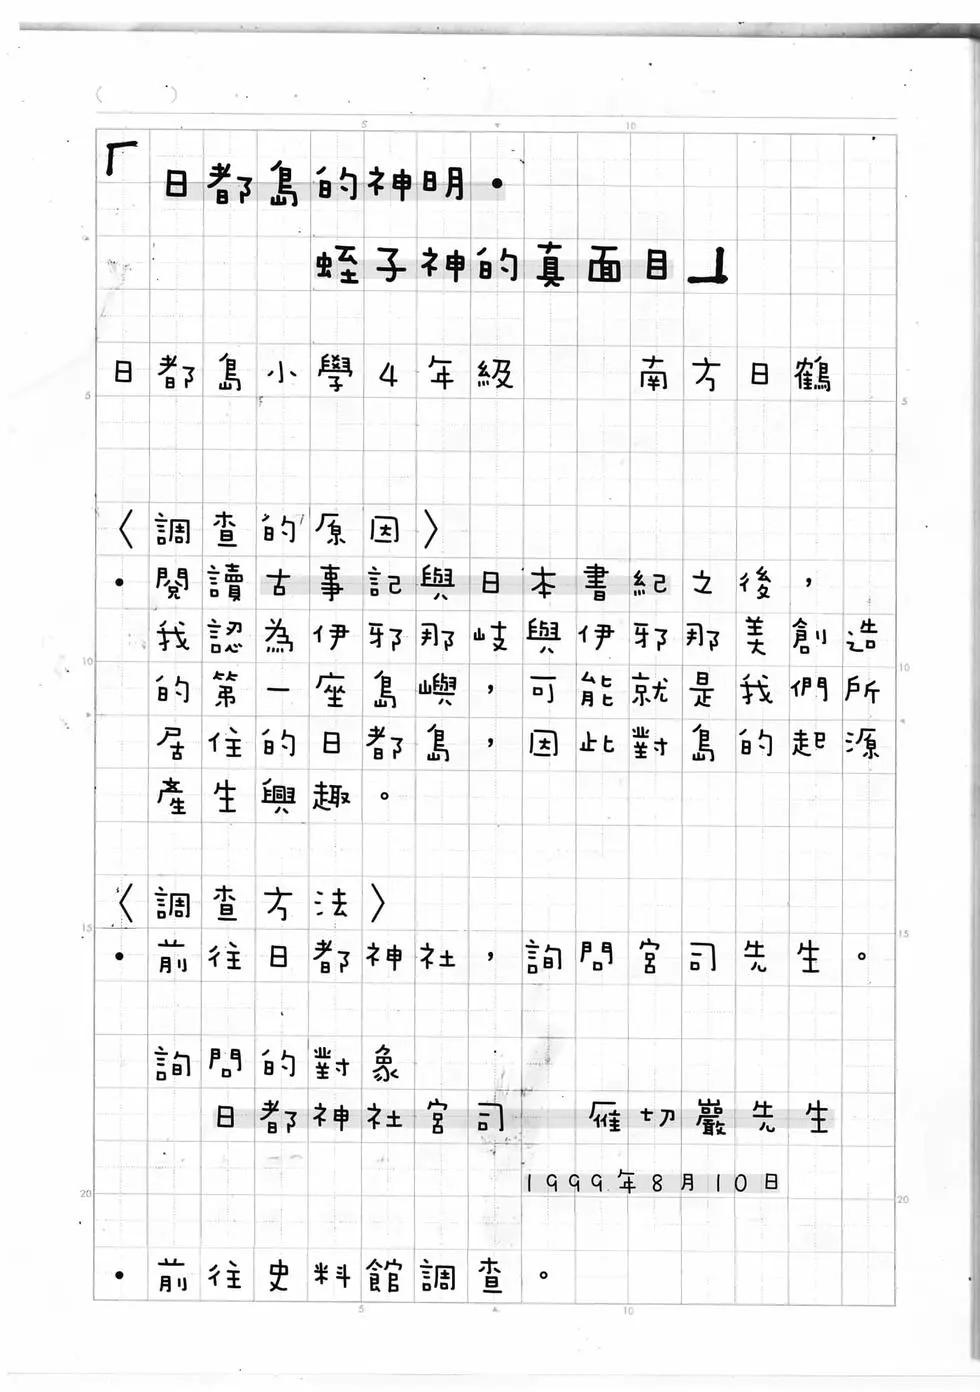 「日都島的神明・
蛭子神的真面目」
日都島小學4年級　　南方日鶴
〈調查的原因〉
・閱讀古事記與日本書紀之後，
我認為伊邪那岐與伊邪那美創造
的第一座島嶼，可能就是我們所
居住的日都島，因此對島的起源
產生興趣。
〈調查方法〉
・前往日都神社，詢問宮司先生。
詢問的對象
日都神社宮司　雁切巖先生
1999年8月10日
・前往史料館調查。